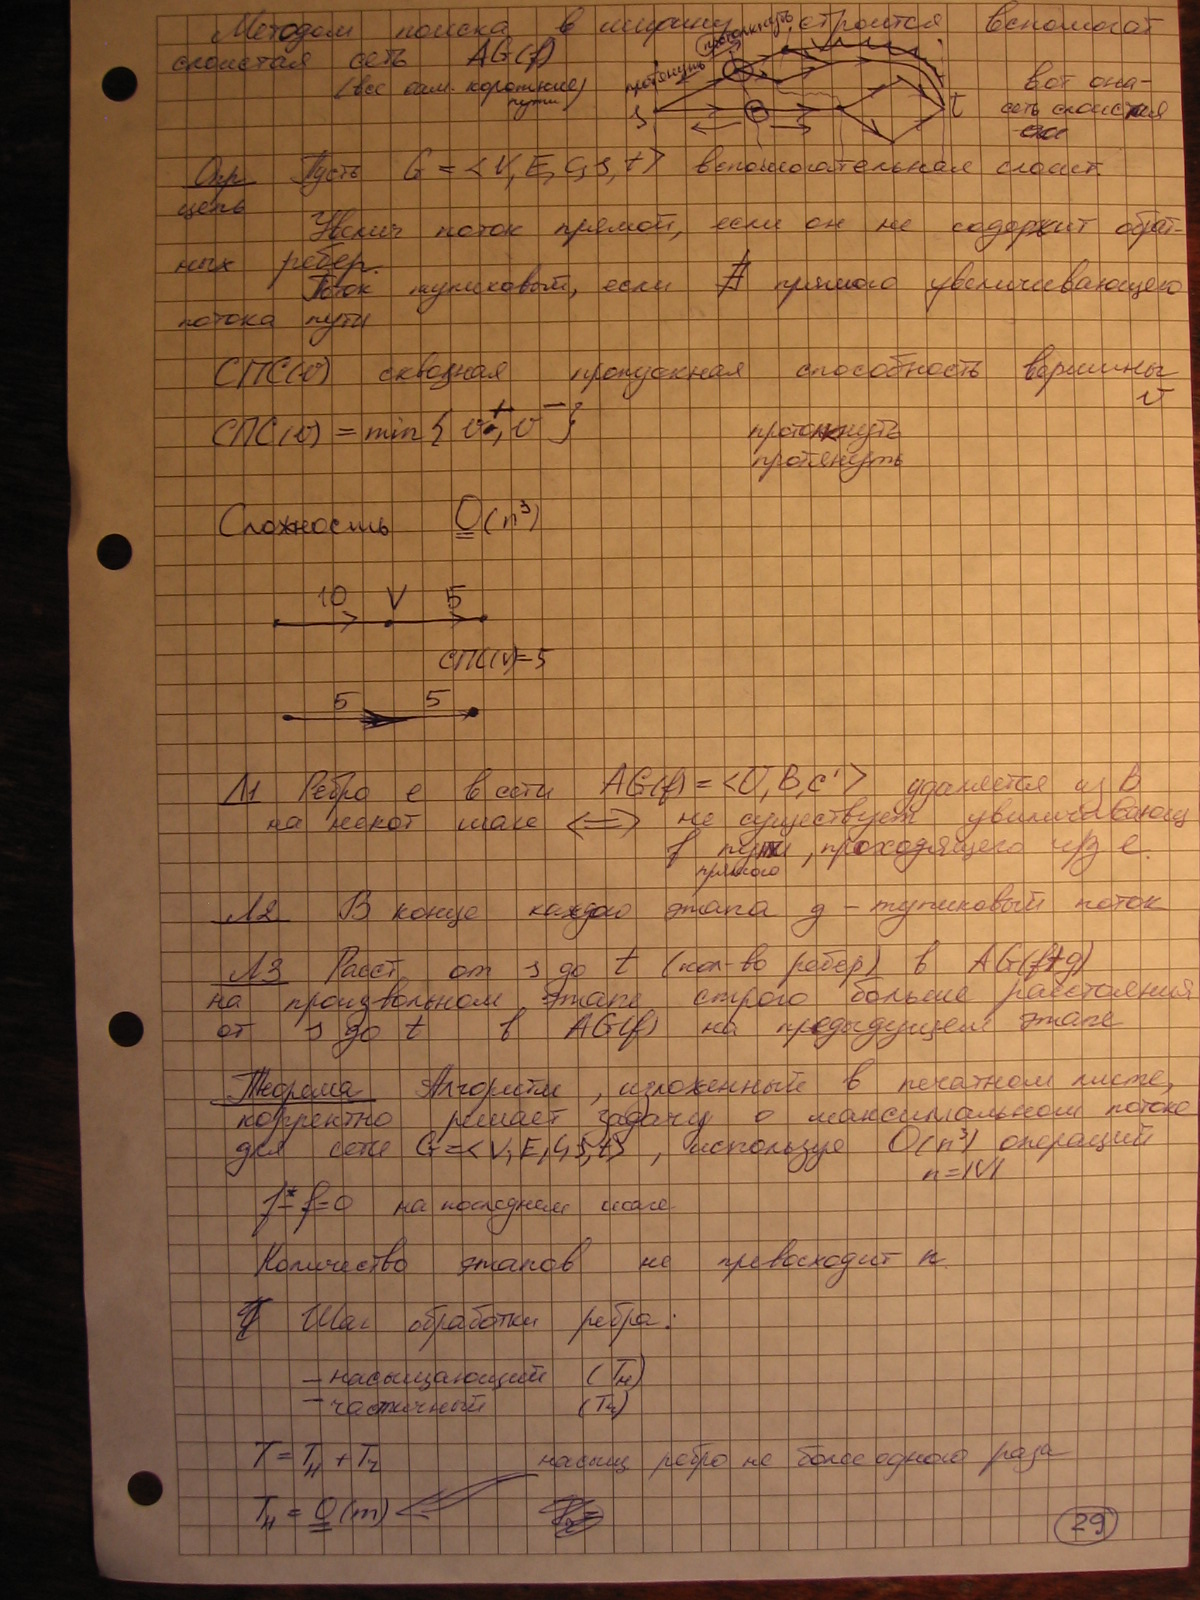 Методом поиска в ширину строится вспомогат
слоистая сеть AG(f)
(все сам. короткие)
пути
протянуть
протолкнуть
s
t
вот она-
сеть слоистая
Опр Пусть G = <V, E, c, s, t> вспомогательная слоист.
цепь
Увелич поток прямой, если он не содержит обрат-
ных ребер.
Поток тупиковый, если ∄ прямого увеличивающего
потока пути
СПС(v) сквозная пропускная способность вершины
v
СПС(v) = min{v⁺, v⁻}
протолкнуть
протянуть
Сложность O(n³)
10 V 5
СПС(v)=5
5 5
Л1 Ребро e в сети AG(f) = <U, B, c'> удаляется из B
на некот шаге <=> не существует увеличивающ
f пути, проходящего ч/з e.
прямого
Л2 В конце каждого этапа g - тупиковый поток
Л3 Расст. от s до t (кол-во ребер) в AG(f+g)
на произвольном этапе строго больше расстояния
от s до t в AG(f) на предыдущем этапе
Теорема Алгоритм, изложенный в печатном листе,
корректно решает задачу о максимальном потоке
для сети G=<V, E, c, s, t>, используя O(n³) операций
n=|V|
f*-f=0 на последнем шаге
Количество этапов не превосходит n.
Шаг обработки ребра:
- насыщающий (Tн)
- частичный (Tч)
T = Tн + Tч насыщ ребро не более одного раза
Tн = O(m)
29